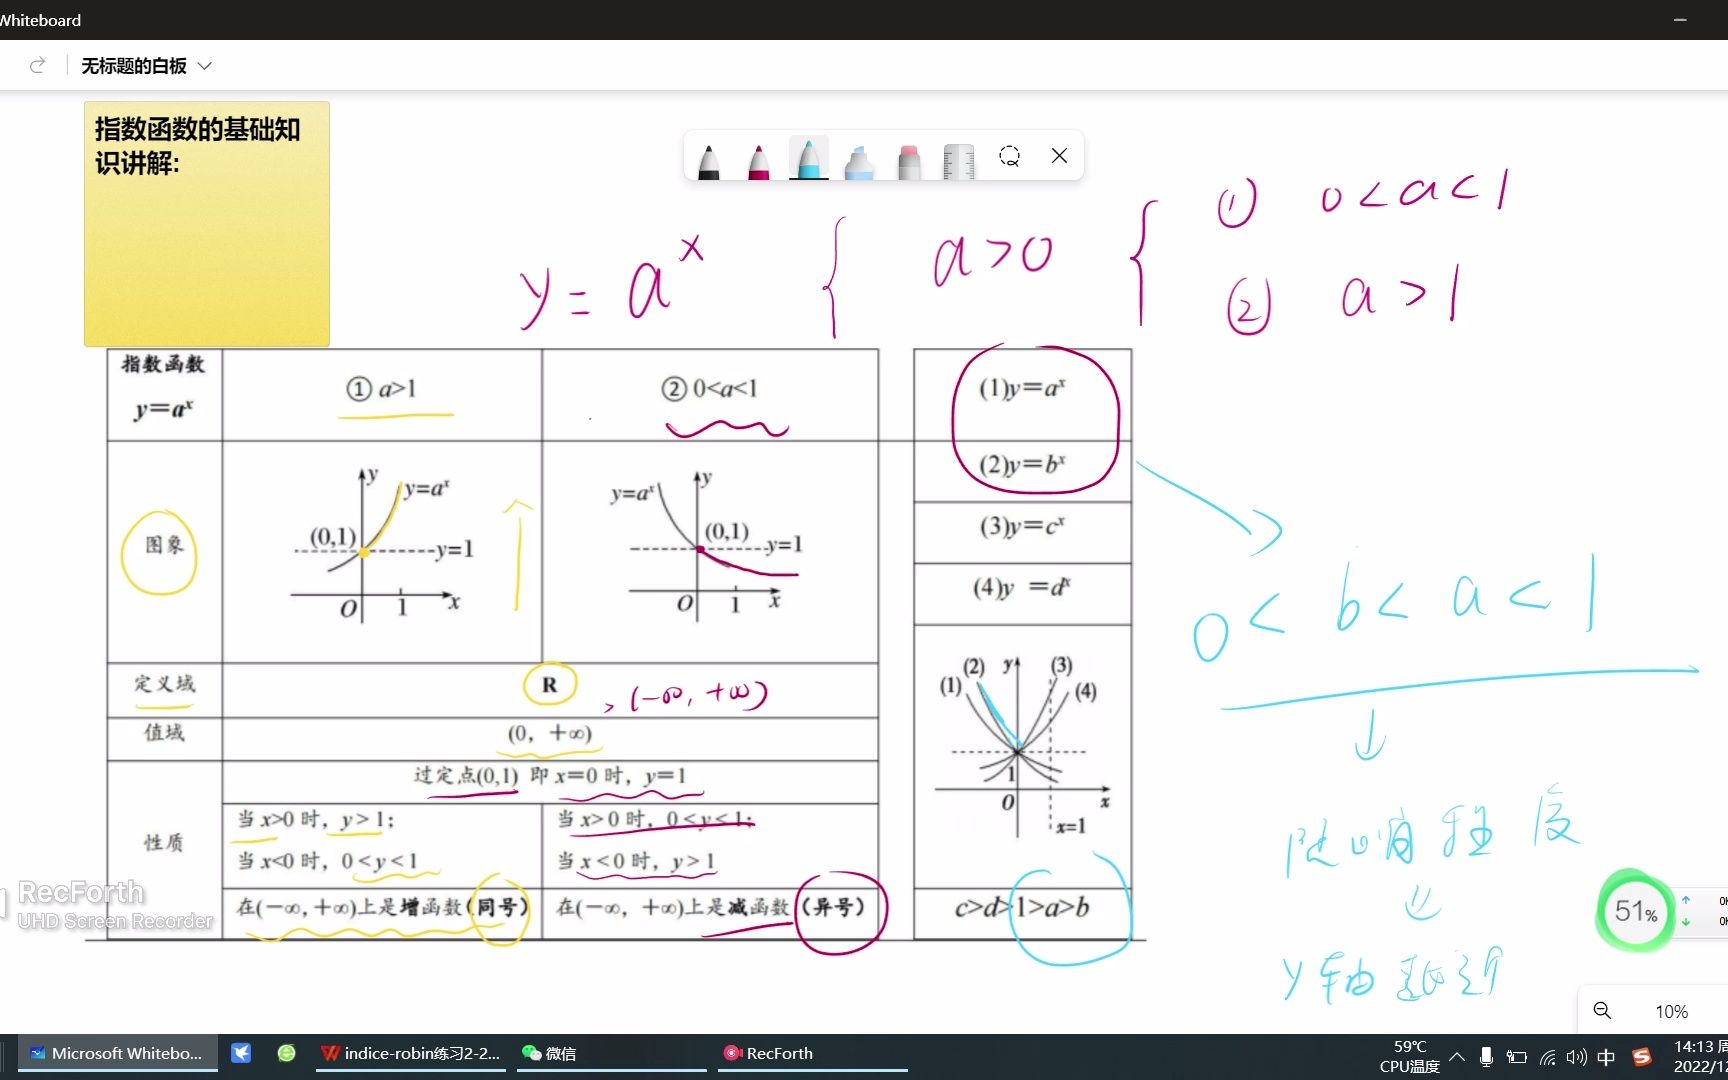 Whiteboard
无标题的白板
指数函数的基础知
识讲解:
y = a^x { a > 0 { ① 0 < a < 1
② a > 1
指数函数
y=a^x
① a>1
② 0<a<1
图象
y
y=a^x
(0,1)
y=1
O 1 x
y=a^x
y
(0,1)
y=1
O 1 x
定义域
R
, (-∞, +∞)
值域
(0, +∞)
性质
过定点(0,1) 即 x=0 时, y=1
当 x>0 时, y>1;
当 x<0 时, 0<y<1
当 x>0 时, 0<y<1;
当 x<0 时, y>1
在(-∞,+∞)上是增函数(同号)
在(-∞, +∞)上是减函数(异号)
(1)y=a^x
(2)y=b^x
(3)y=c^x
(4)y =d^x
(2) y (3)
(1) (4)
1
O x
x=1
c>d>1>a>b
0 < b < a < 1
程度
y轴
RecForth
UHD Screen Recorder
51%
10%
Microsoft Whitebo...
indice-robin练习2-2...
微信
RecForth
59℃
CPU温度
中
14:13
2022/12